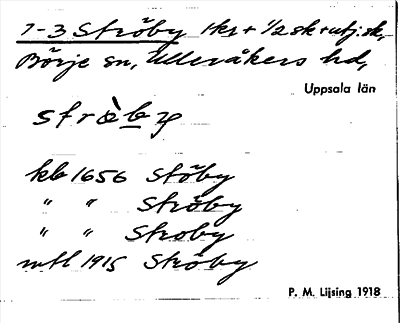 1-3 Ströby 1kr + 1/2 sk + utj: sk,
Börje sn, Ulleråkers hd,
Uppsala län
strὰby
kb 1656 Stöby
" " Ströby
" " Stroby
mtl 1915 Ströby
P. M. Lijsing 1918